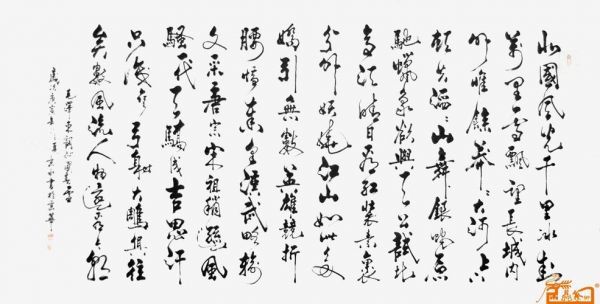 北國风光千里冰封
萬里雪飄望長城内
外唯餘莽莽大河上下
頓失滔滔山舞銀蛇原
馳蠟象欲與天公試比
高須晴日看紅裝素裹
分外妖嬈江山如此多
嬌引無數英雄競折
腰惜秦皇漢武略輸
文采唐宗宋祖稍遜风
騷一代天驕成吉思汗
只識弯弓射大雕俱往
矣數風流人物還看今朝
毛澤東詞沁園春雪
書於京華